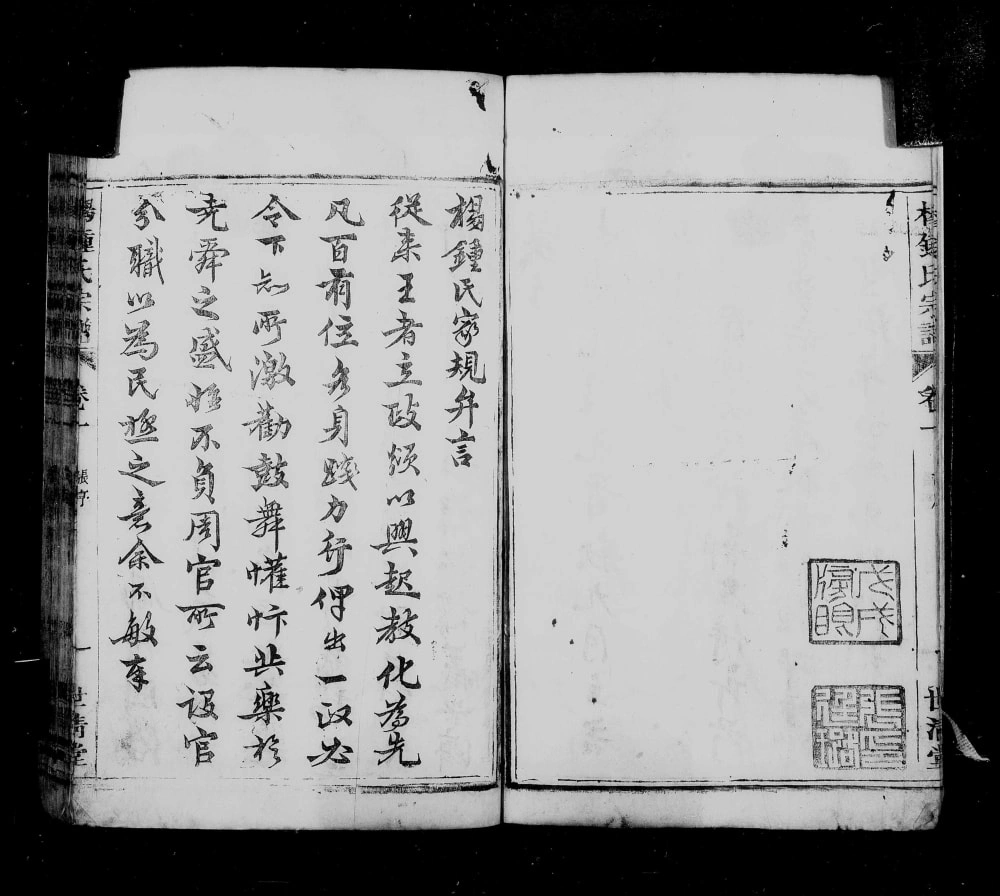 楊鍾氏宗譜
卷一
世清堂
戊戌
楊鍾氏家規弁言
從来王者立政須以興起教化為先
凡百有位各身踐力行俾出一政必
令下知所激勸鼓舞懽忭共樂於
堯舜之盛始不負周官所云設官
分職以為民極之意余不敏奉
楊鍾氏宗譜
卷一
張序
一
世清堂